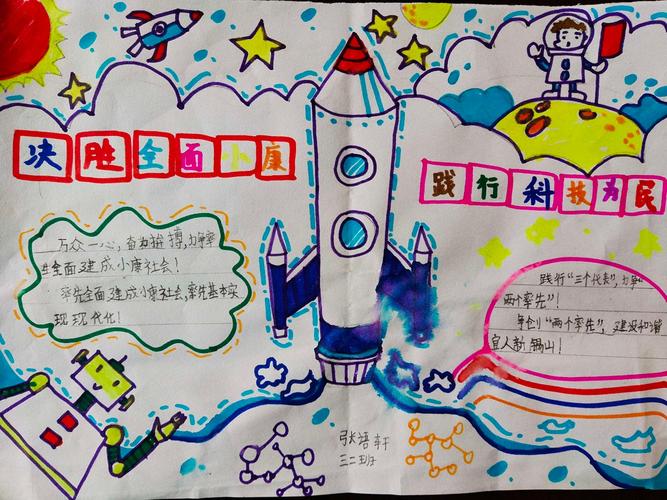 决胜全面小康
践行科技为民
万众一心,奋力拼搏,力争率
先全面建成小康社会!
率先全面建成小康社会,率先基本实
现现代化!
践行“三个代表”,力争“
两个率先”!
争创“两个率先”,建设和谐
宜人新锡山!
张语轩
三二班